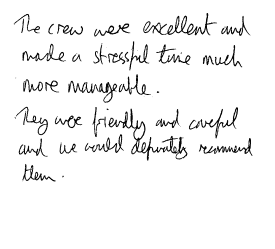 The crew were excellent and
made a stressful time much
more manageable.
They were friendly and careful
and we would definitely recommend
them.